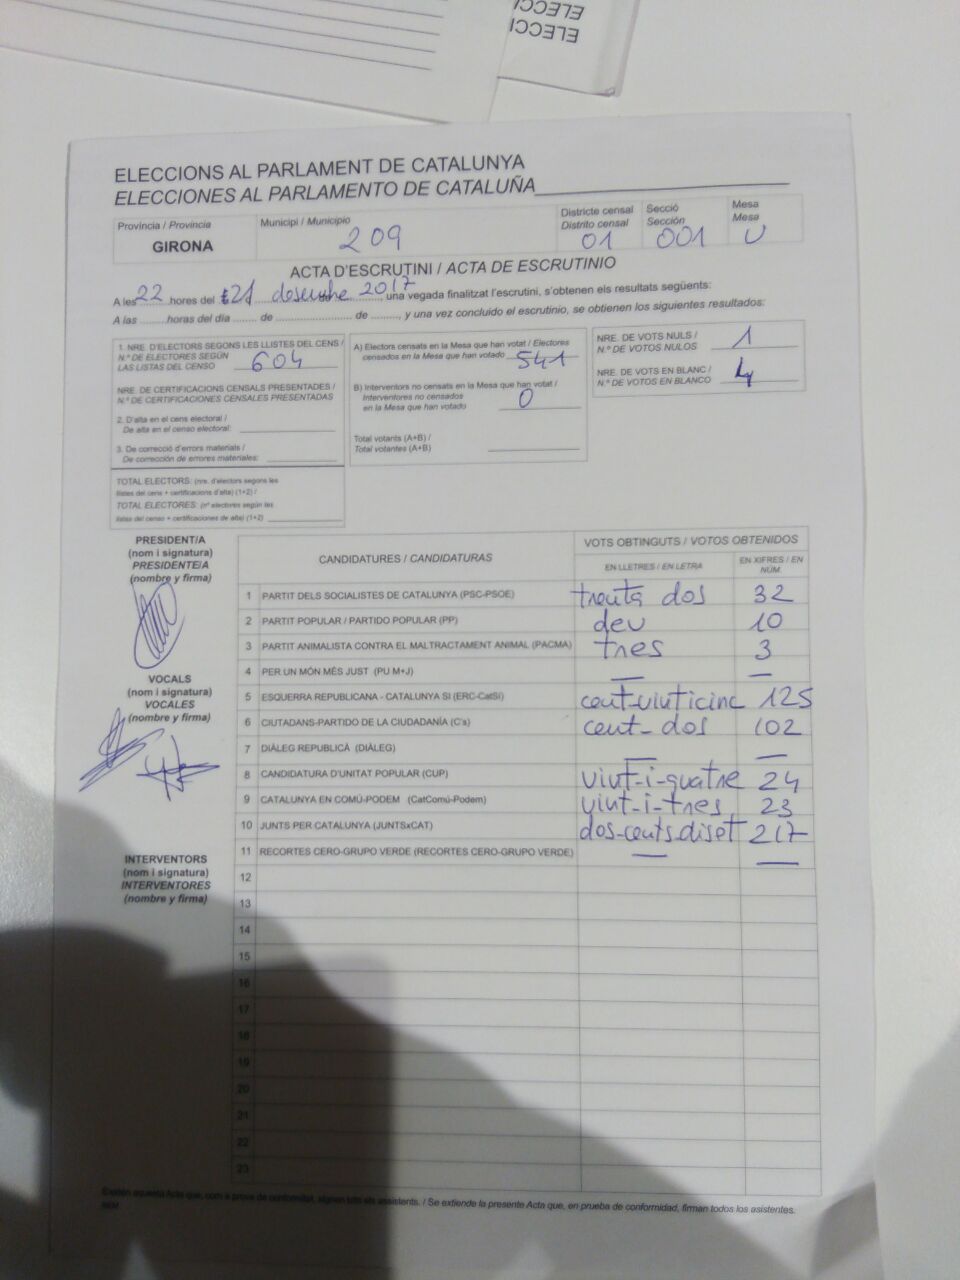 ELECCI
ELECCI
ELECCIONS AL PARLAMENT DE CATALUNYA
ELECCIONES AL PARLAMENTO DE CATALUÑA
Província / Provincia
GIRONA
Municipi / Municipio
209
Districte censal
Distrito censal
01
Secció
Sección
001
Mesa
Mesa
U
ACTA D'ESCRUTINI / ACTA DE ESCRUTINIO
A les 22 hores del 21 desembre 2017, una vegada finalitzat l'escrutini, s'obtenen els resultats següents:
A las ......... horas del día ...... de ........................ de ........, y una vez concluido el escrutinio, se obtienen los siguientes resultados:
1. NRE. D'ELECTORS SEGONS LES LLISTES DEL CENS /
N.º DE ELECTORES SEGÚN
LAS LISTAS DEL CENSO 604
NRE. DE CERTIFICACIONS CENSALS PRESENTADES /
N.º DE CERTIFICACIONES CENSALES PRESENTADAS
2. D'alta en el cens electoral /
De alta en el censo electoral:
3. De correcció d'errors materials /
De corrección de errores materiales:
TOTAL ELECTORS: (nre. d'electors segons les
llistes del cens + certificacions d'alta) (1+2) /
TOTAL ELECTORES: (nº electores según las
listas del censo + certificaciones de alta) (1+2)
A) Electors censats en la Mesa que han votat / Electores
censados en la Mesa que han votado 541
B) Interventors no censats en la Mesa que han votat /
Interventores no censados
en la Mesa que han votado 0
Total votants (A+B) /
Total votantes (A+B)
NRE. DE VOTS NULS /
N.º DE VOTOS NULOS 1
NRE. DE VOTS EN BLANC /
N.º DE VOTOS EN BLANCO 4
PRESIDENT/A
(nom i signatura)
PRESIDENTE/A
(nombre y firma)
VOCALS
(nom i signatura)
VOCALES
(nombre y firma)
INTERVENTORS
(nom i signatura)
INTERVENTORES
(nombre y firma)
CANDIDATURES / CANDIDATURAS
VOTS OBTINGUTS / VOTOS OBTENIDOS
EN LLETRES / EN LETRA
EN XIFRES / EN NÚM.
1 PARTIT DELS SOCIALISTES DE CATALUNYA (PSC-PSOE) trenta dos 32
2 PARTIT POPULAR / PARTIDO POPULAR (PP) deu 10
3 PARTIT ANIMALISTA CONTRA EL MALTRACTAMENT ANIMAL (PACMA) tres 3
4 PER UN MÓN MÉS JUST (PU M+J) — —
5 ESQUERRA REPUBLICANA - CATALUNYA SÍ (ERC-CatSí) cent-vinticinc 125
6 CIUTADANS-PARTIDO DE LA CIUDADANÍA (C's) cent-dos 102
7 DIÀLEG REPUBLICÀ (DIÀLEG) — —
8 CANDIDATURA D'UNITAT POPULAR (CUP) vint-i-quatre 24
9 CATALUNYA EN COMÚ-PODEM (CatComú-Podem) vint-i-tres 23
10 JUNTS PER CATALUNYA (JUNTSxCAT) dos-cents diset 217
11 RECORTES CERO-GRUPO VERDE (RECORTES CERO-GRUPO VERDE) — —
12
13
14
15
16
17
18
19
20
21
22
23
Estén aquesta Acta que, com a prova de conformitat, signen tots els assistents. / Se extiende la presente Acta que, en prueba de conformidad, firman todos los asistentes.